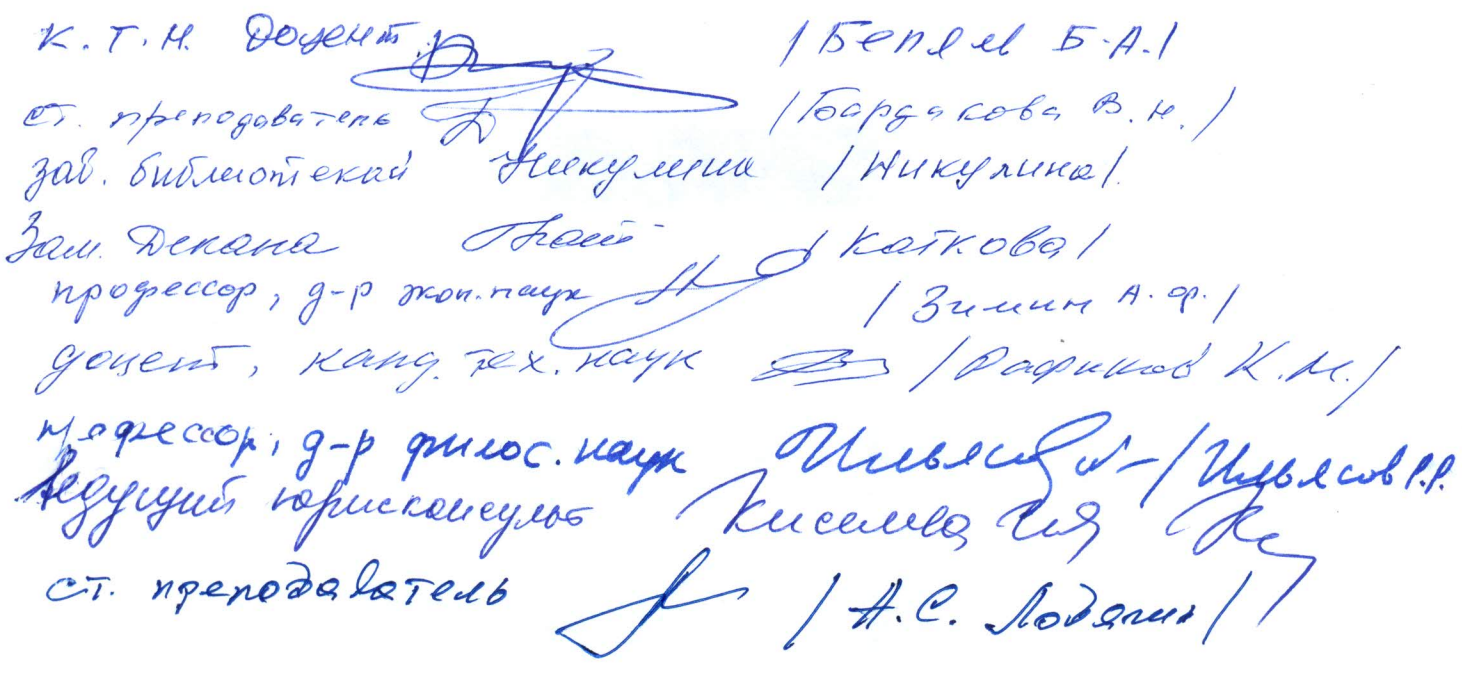 к.т.н. доцент /Беляев Б.А./
ст. преподаватель /Бардакова В.Н./
зав. библиотекой Никулина /Никулина/.
Зам. Декана /Каткова/
профессор, д-р экон. наук /Зимин А.Ф./
доцент, канд. тех. наук /Рафиков К.М./
профессор, д-р филос. наук Ильясов /Ильясов Р.Р.
Ведущий юрисконсульт Киселева
ст. преподаватель /А.С. Лодягин/